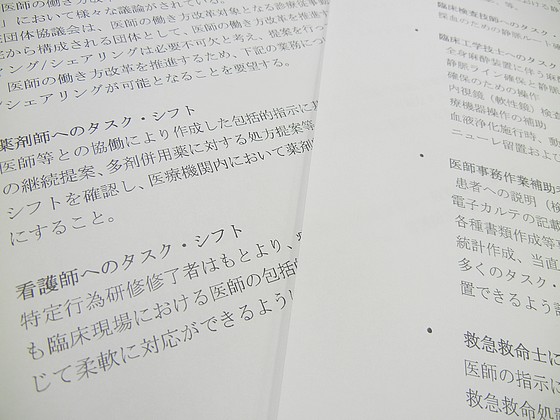 」において様々な議論がされている。
団体協議会は、医師の働き方改革対象となる診療従事
から構成される団体として、医師の働き方改革を推進す
ィング/シェアリングは必要不可欠と考え、提案を行っ
医師の働き方改革を推進するため、下記の業務につ
シェアリングが可能となることを要望する。
薬剤師へのタスク・シフト
医師等との協働により作成した包括的指示に
の継続提案、多剤併用薬に対する処方提案等
シフトを確認し、医療機関内において薬剤
にすること。
看護師へのタスク・シフト
特定行為研修修了者はもとより、
も臨床現場における医師の包括的
じて柔軟に対応ができるように
臨床検査技師へのタスク
採血のための静脈ルー
臨床工学技士へのタス
全身麻酔装置に伴う麻
静脈ライン確保と静脈
確保のための操作
内視鏡（軟性鏡）検査
療機器操作の補助
血液浄化施行時、動
ニューレ留置およ
・
医師事務作業補助
患者への説明（検
電子カルテの記載
各種書類作成等
統計作成、当直
多くのタスク・
置できるよう
・
救急救命士に
医師の指示に
救急救命処